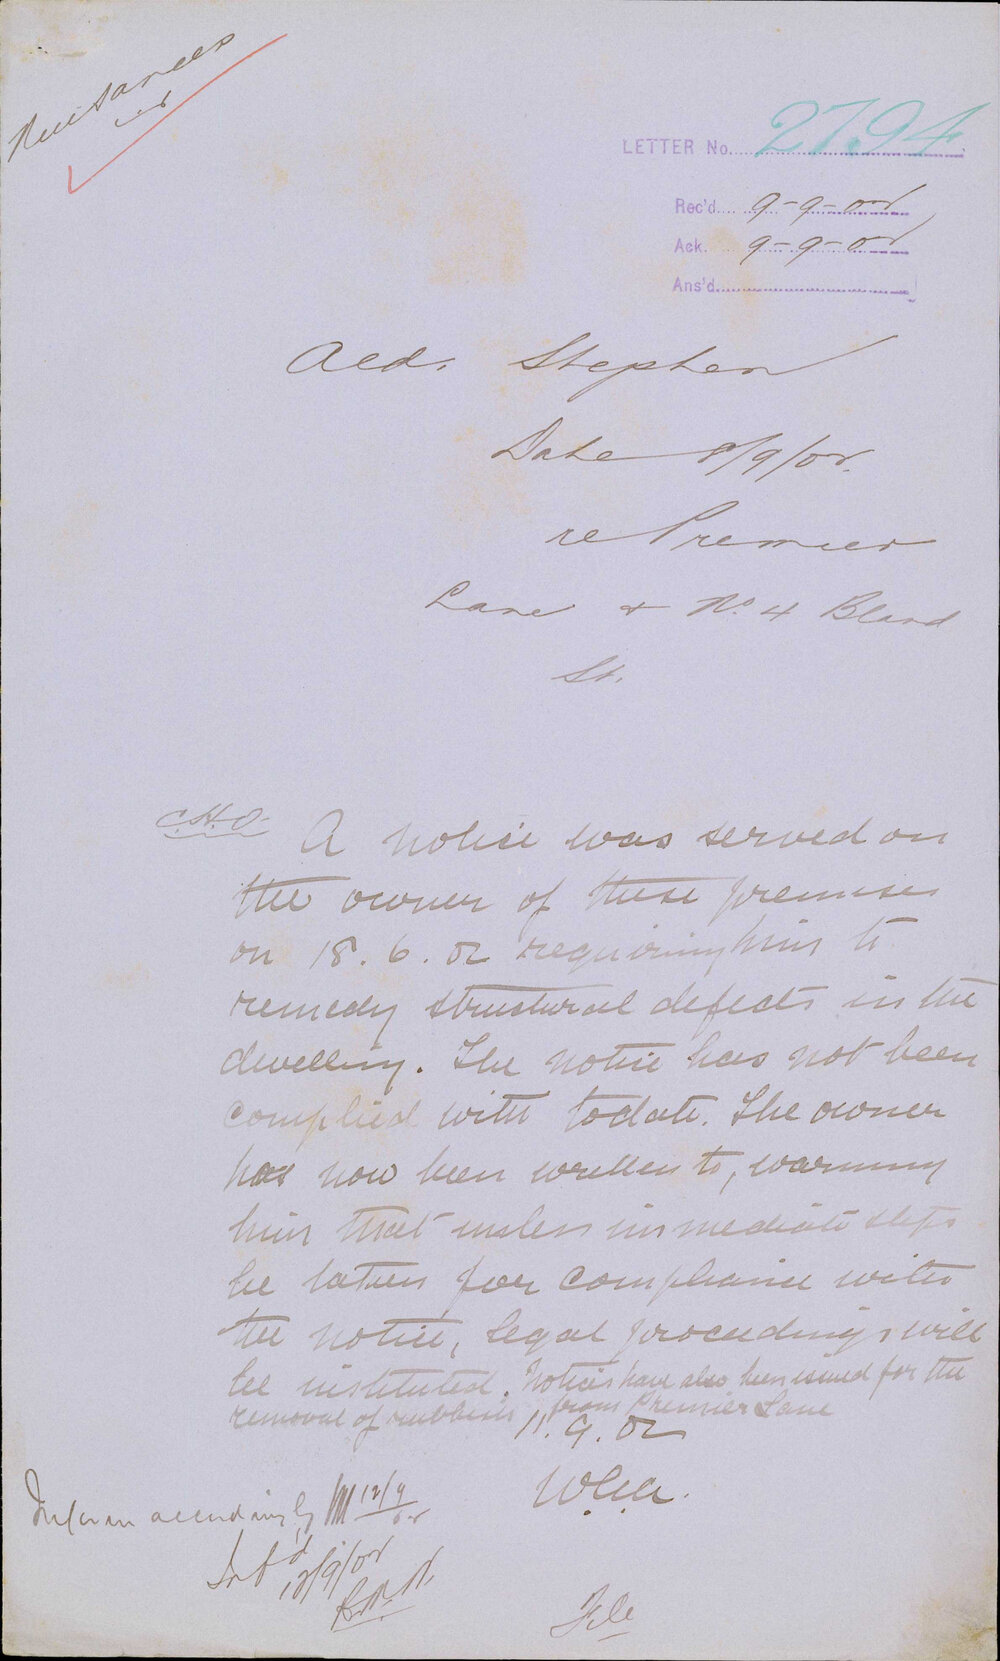 Nuisances
LETTER No. 2794
Rec'd 9-9-02
Ack. 9-9-02
Ans'd
Ald. Stephen
Date 8/9/02.
re Premier
Lane & No. 4 Bland
St.
C.H.O.
A notice was served on
the owner of these premises
on 18.6.02 requiring him to
remedy structural defects in the
dwelling. The notice has not been
complied with todate. The owner
has now been written to, warning
him that unless immediate steps
be taken for compliance with
the notice, legal proceedings will
be instituted. Notices have also been issued for the
removal of rubbish from Premier Lane
11.9.02
Inform accordingly 12/9/02
Inf'd 12/9/02
File